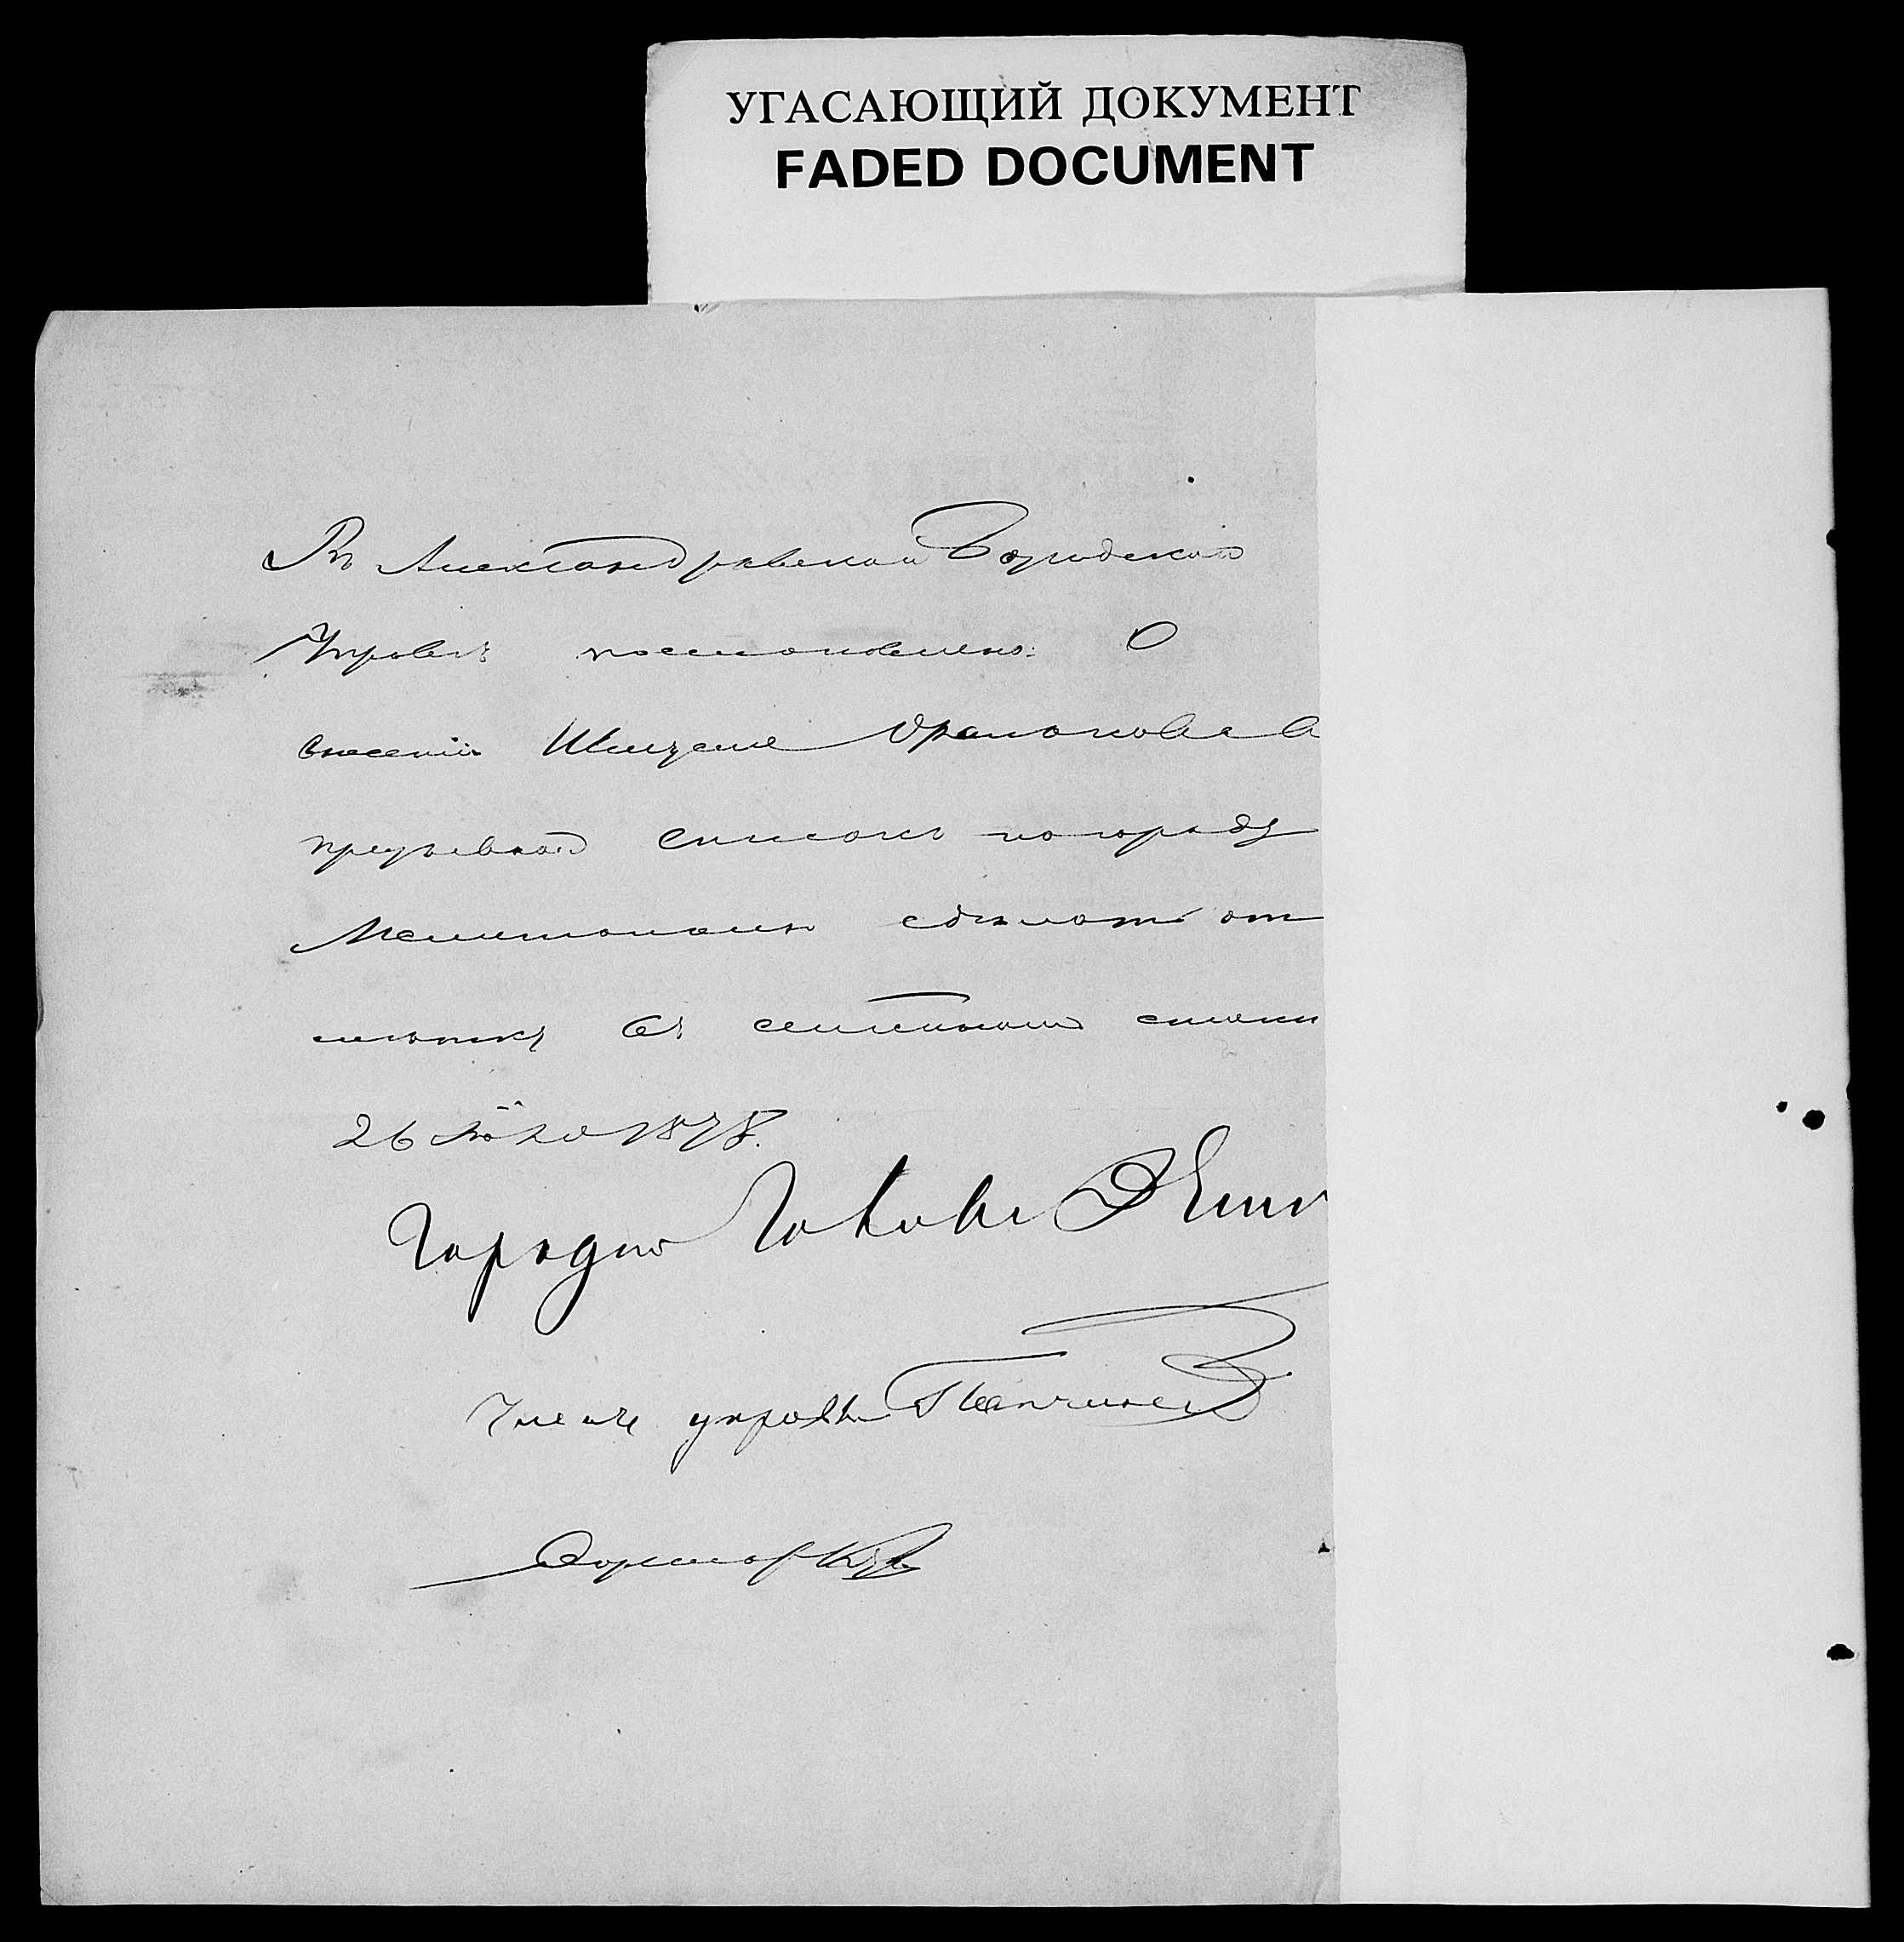 УГАСАЮЩИЙ ДОКУМЕНТ
FADED DOCUMENT
Въ Александровской Городской
Управѣ постановлено: О
внесеніи Шмуеля в
призывной списокъ по городу
Мелитополю сдѣлать от
мѣтку въ семейномъ списки
26 1878.
Городско Голова
Членъ управы